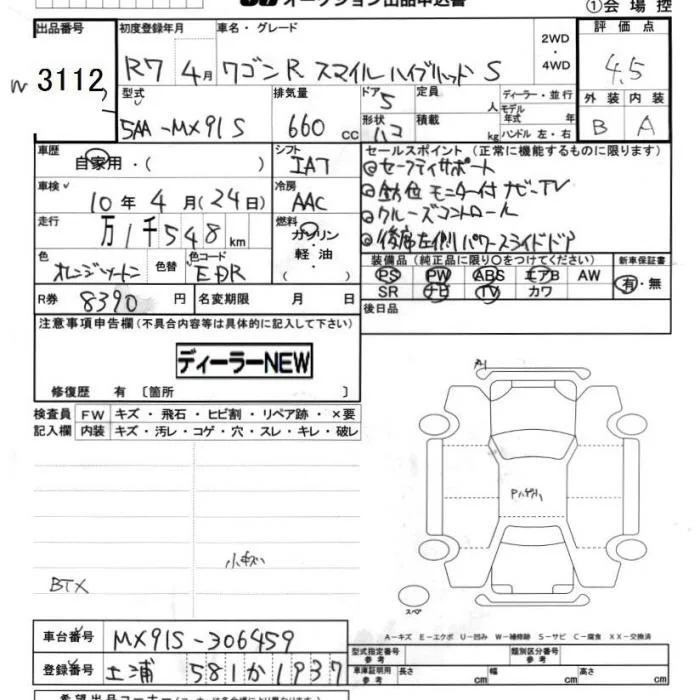 オークション出品申込書
①会場控
出品番号
3112
初度登録年月
R7 4月
車名・グレード
ワゴンR スマイル ハイブリッド S
2WD
4WD
評価点
4.5
外装 内装
B A
型式
5AA-MX91S
排気量
660 cc
ドア 5
形状 ハコ
定員 人
積載 kg
ディーラー・並行
モデル年式 年
ハンドル 左・右
車歴
自家用・( )
シフト
IAT
車検
10年4月(24日)
冷房
AAC
走行
万1千548km
燃料
ガソリン
軽油
( )
色
オレンジツートン
色替
色コード
R券
8390円
名変期限 月 日
セールスポイント(正常に機能するものに限ります)
◎セーフティサポート
◎全方位モニター付ナビ-TV
◎クルーズコントロール
◎後席左側パワースライドドア
装備品(純正品に限り○をつけてください)
PS PW ABS エアB AW
SR ナビ TV カワ
新車保証書
有・無
後日品
注意事項申告欄(不具合内容等は具体的に記入して下さい)
ディーラーNEW
修復歴 有〔箇所 〕
検査員記入欄
FW キズ・飛石・ヒビ割・リペア跡・×要
内装 キズ・汚レ・コゲ・穴・スレ・キレ・破レ
小キズ
BTX
A1
スペア
A-キズ E-エクボ U-凹み W-補修跡 S-サビ C-腐食 XX-交換済
車台番号
MX91S-306459
登録番号
土浦 581 か 1937
型式指定番号 参考
類別区分番号 参考
車庫証明用 参考
長さ cm 幅 cm 高さ cm